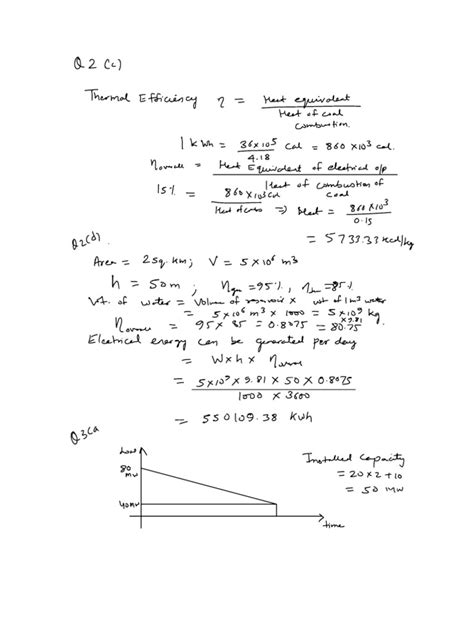 Q2 (c)
Thermal Efficiency η = Heat equivalent
Heat of coal
combustion
1 kWh = 36x10⁵ cal = 860 x10³ cal.
4.18
ηoverall = Heat Equivalent of electrical o/p
Heat of combustion of
coal
15% = 860x10³cal => Heat = 860x10³
0.15
= 5733.33 kcal/kg
Q2(d).
Area = 2 sq. km; V = 5x10⁶ m³
h = 50m; ηgen = 95%, = 85%
Wt. of water = Volume of reservoir x wt of 1m³ water
= 5x10⁶ m³ x 1000 = 5x10⁹ kg
x 9.81
ηoverall = 95 x 85 = 0.8075 = 80.75
Electrical energy can be generated per day
= W x h x ηoverall
= 5x10⁹ x 9.81 x 50 x 0.8075
1000 x 3600
= 550109.38 kWh
Q3(a
Load
80
MW
40MW
time
Installed Capacity
= 20x2+10
= 50 MW